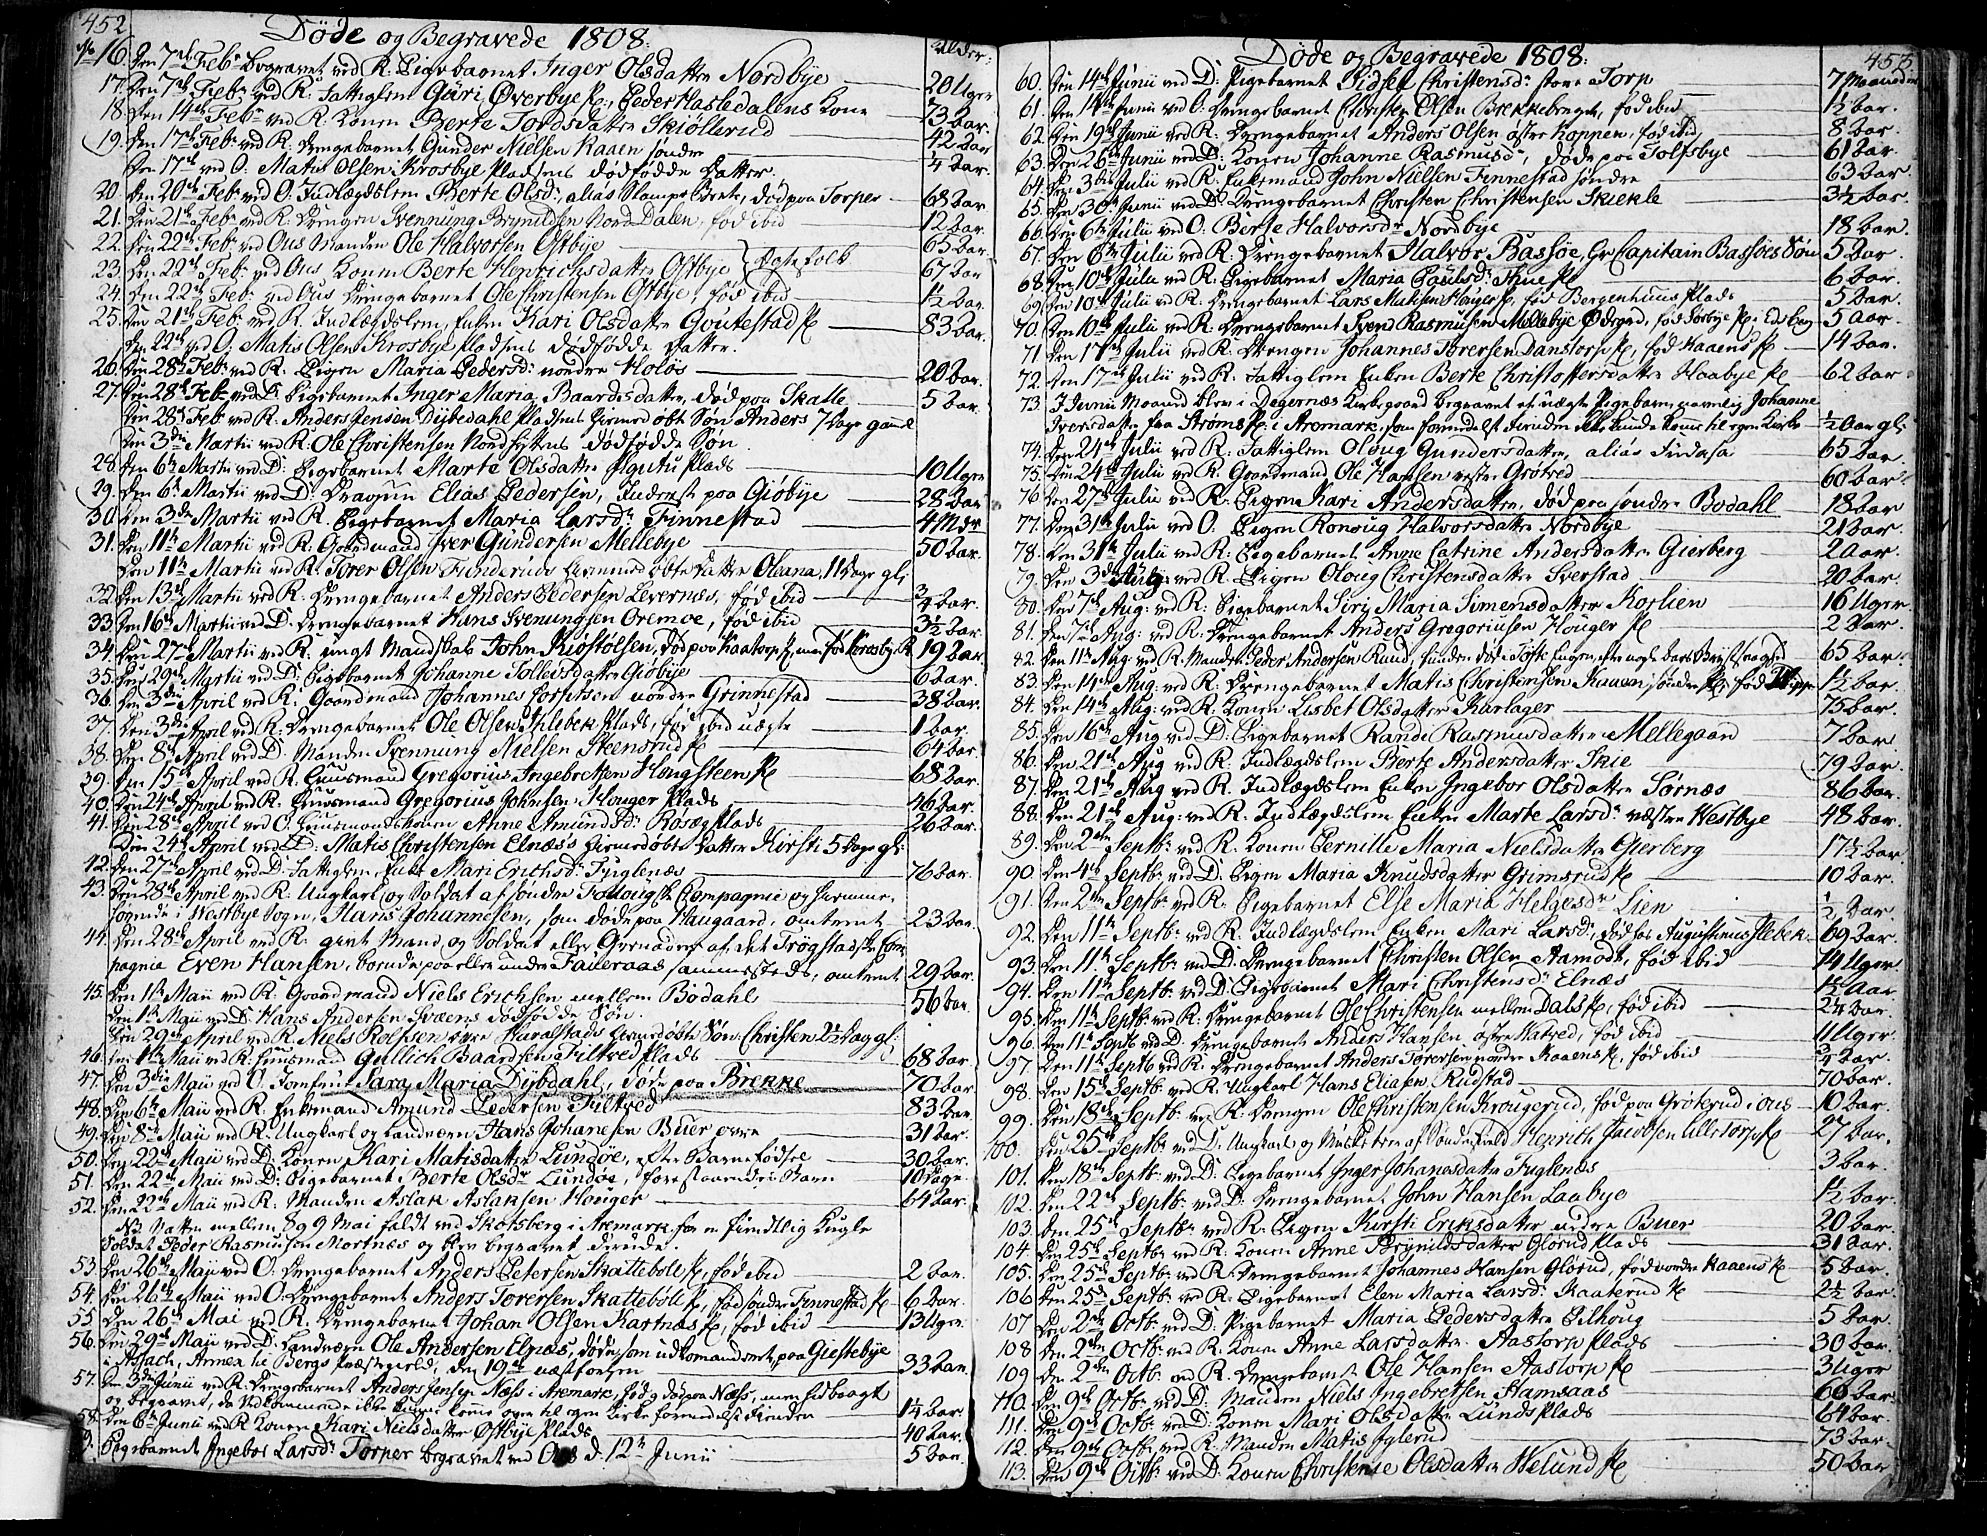 452
Døde og Begravede 1808.
Alder:
No 16. Den 7de Feb. Begravet ved R. Pigebarnet Inger Olsdatter Nordbye 20 Uger
17. Den 7de Feb. ved R. Fattiglem Guri Øverbye, Peder Hasledalens Kone 73 Aar.
18. Den 14de Feb. ved R. Konen Berte Tordsdatter Skiøllerud 42 Aar
19. Den 17de Feb. ved R. Drengebarnet Gunder Nielsen Kaaen søndre ¼ Aar.
Den 17de ved O. Matis Olsen Krosbye Pladsens dødfødde Datter.
20. Den 20de Feb. ved O. Indlægdslem Berte Olsd., alias Stampe Berte, død paa Torper 68 Aar.
21. Den 21de Feb. ved R. Drengen Svennung Bryndilsen Nord Dalen, fød ibid 12 Aar.
22. Den 22de Feb. ved Ous Manden Ole Halvorsen Østbye 65 Aar.
23. Den 22de Feb. ved Ous Konen Berte Henrichsdatter Østbye 67 Aar
24. Den 22de Feb. ved Ous Drengebarnet Ole Christensen Østbye, fød ibid 1½ Aar.
25. Den 21de Feb. ved R. Indlægdslem, Enken Kari Olsdatter Goutestad 83 Aar.
Den 22de ved O. Matis Olsens Krosbye Pladsens dødfødde Datter.
26. Den 28de Feb. ved R. Pigen Maria Pedersd. nordre Holøs 20 Aar.
27. Den 28de Feb. ved D. Pigebarnet Inger Maria Baardsdatter, død paa Skalle 5 Aar.
Den 28de Feb. ved R. Anders Jensen Dybedahl Pladsens hiemedøbt Søn Anders 7 Dage gaml
Den 3die Martii ved R. Ole Christensen Nord dødfødde Søn
28. Den 6te Martii ved D. Pigebarnet Marte Olsdatter Plads 10 Uger
29. Den 6te Martii ved D. Dragun Elias Pedersen, Inderst paa Giøbye 28 Aar
30. Den 3die Martii ved R. Pigebarnet Maria Larsd. Finnestad 4 Mdr
31. Den 11te Martii ved R. Goardmand Iver Gundersen Mellebye 50 Aar.
Den 11te Martii ved R. Torer Olsen hiemmedøbte Datter Oleana, 11 Dage gl.
32. Den 13de Martii ved R. Drengebarnet Anders Pedersen Levernæs, fød ibid ¾ Aar.
33. Den 16de Martii ved D. Drengebarnet Hans Svenungsen Oremoe, fød ibid 3½ Aar.
34. Den 27de Martii ved R. ungt Mandskab John Kiøstolsen, død paa Kaatorp, men fød Krosby 19 Aar.
35. Den 29de Martii ved D. Pigebarnet Johanne Tollevsdatter Giøbye 6 Aar.
36. Den 3die April ved R. Goardmand Johannes nordre Grinnestad 38 Aar.
37. Den 3die April ved R. Drengebarnet Ole Olsen Slebek Plads, fød ibid uægte 1 Aar.
38. Den 8de April ved D. Manden Svennung Nielsen Steensrud 64 Aar.
39. Den 15de April ved R. Huusmand Gregorius Ingebretsen Hengsteen 68 Aar.
40. Den 24de April ved R. Huusmand Gregorius Johnsen Houger Plads 46 Aar.
41. Den 28de April ved O. Huusmandskonen Anne Amundsd. Rosæg Plads 26 Aar.
Den 24de April ved D. Matis Christensen Elnæs's hiemedøbte Datter Kirsti 5 Dage gl.
42. Den 27de April ved D. Fattiglem, Enke Mari Erichsd. Fuglenæs 76 Aar.
43. Den 28de April ved R. Ungkarl og Soldat af søndre Follougske Compagnie og hiemme-
hørende i Westbye Sogn, Hans Johannesen, som døde paa Haugaard, omtrent 23 Aar.
44. Den 28de April ved R. givt Mand, og Soldat eller Grenadeer af det Trøgstadske Com-
pagnie Even Hansen, boende paa eller under Faaleraas sammesteds, omtrent 29 Aar.
45. Den 1te Maii ved R. Goardmand Niels Erichsen mellem Bødahl 56 Aar.
Den 1te Maii ved D. Hans Andersen Svæens dødfødde Søn.
Den 29de April ved R. Niels Rolfsen øvre Haralstads hiemedøbte Søn Christen 2½ Dag gl.
46. Den 1te Maii ved R. Huusmand Gullich Baardsen Filtved Plads 68 Aar
47. Den 3die Maii ved O. Jomfrue Sara Maria Dybdahl, døde paa Brekke 70 Aar
48. Den 6te Maii ved R. Enkemand Amund Pedersen Filtved 83 Aar
49. Den 8de Maii ved R. Ungkarl og Landværn Hans Johanesen Buer øvre 31 Aar.
50. Den 22de Maii ved D. Konen Kari Matisdatter Lundøe, efter Barnefødsel 30 Aar.
51. Den 22de Maii ved D. Pigebarnet Berte Olsdr Lundøe, forestaaendes Barn 10 Dage.
52. Den 22de Maii ved R. Manden Aslak Aslaksen Houger 64 Aar.
NB Natten mellem 8 og 9 Mai faldt ved Skotsberg i Aremark for en fiendtlig Kugle
Soldat Peder Rasmusen Mortnæs og blev begravet derude.
53. Den 26de Maii ved O. Drengebarnet Anders Petersen Skattebøle, fød ibid 2 Aar.
54. Den 26de Maii ved O. Drengebarnet Anders Torersen Skattebøle, fød søndre Finnestad 6 Aar.
55. Den 26de Mai ved R. Drengebarnet Johan Olsen Kartnæs, fød ibid 13 Uger
56. Den 29de Maii ved D. Landværn Ole Andersen Elnæs, døde som udkomanderet paa Giestebye
i Assach, Annex til Bergs Præstegield, den 19de næstforgen 33 Aar.
57. Den 3die Junii ved R. Drengebarnet Anders Jensen Næss i Aremark, fød og død paa Næss, men hidbragt
og begravet, da Vedkommende ikke kunne komme over til egen Kirke formedelst Fienden 1¼ Aar
58. Den 6te Junii ved R. Konen Kari Nielsdatter Østbye Plads 40 Aar.
9. Pigebarnet Ingebor Larsd. Torper begravet ved Ous d. 12te Junii 5 Aar.
453
Døde og Begravede 1808.
60. Den 14de Junii ved D. Pigebarnet Sidsel Christensd. store Torp 7 Maaneder
61. Den 14de Junii ved O. Drengebarnet Christen Olsen Brekkebraaten, fød ibid 1½ Aar.
62. Den 19de Junii ved R. Drengebarnet Anders Olsen østre Koppen, fød ibid 8 Aar
63. Den 26de Junii ved D. Konen Johanne Rasmusd., døde paa Tolfsbye 61 Aar.
64. Den 3die Julii ved R. Enkemand John Nielsen Finnestad søndre 63 Aar.
65. Den 30te Junii ved D. Drengebarnet Christen Christensen Skiekle 3½ Aar.
66. Den 6te Julii ved O. Berte Halvorsdr Nordbye 18 Aar.
67. Den 6te Julii ved R. Drengebarnet Halvor Bassøe, Hr. Capitain Bassøes Søn 5 Aar.
68. Den 10de Julii ved R. Pigebarnet Maria Poulsd. 6 Aar.
69. Den 10de Julii ved R. Drengebarnet Lars Matisen Houger, fød Bergenhuus Plads 5 Aar.
70. Den 10de Julii ved R. Drengebarnet Svend Rasmusen Mellebye Ødegrd, fød Torbye 5 Aar.
71. Den 17de Julii ved R. Drengen Johannes Torersen Danstorp, fød Kaaens 14 Aar.
72. Den 17de Julii ved R. Fattiglem Enken Berte Christoffersdatter Haabye 62 Aar
73. I Junii Maaned blev i Degernæs Kirkegoard begravet et uægte Pigebarn, navnlig Johanne
Iversdatter fra Strøms i Aremark, som formedelst Fienden ikke kunde komme til egen Kirke ½ Aar gl.
74. Den 24de Julii ved R. Fattiglem Oloug Gundersdatter, alias 65 Aar.
75. Den 24de Julii ved R. Goardmand Ole Hansen vestre Grøtved 60 Aar.
76. Den 27de Julii ved R. Pigen Kari Andersdatter, død paa søndre Bødahl 18 Aar
77. Den 31te Julii ved O. Pigen Ronoug Halvorsdatter Nordbye 21 Aar.
78. Den 31te Julii ved R. Pigebarnet Anne Catrine Andersdatter Gierberg 2 Aar.
79. Den 3die Aug: ved R. Pigen Oloug Christensdatter Sverstad 20 Aar.
80. Den 7de Aug: ved R. Pigebarnet Siri Maria Simensdatter Korlien 16 Uger
81. Den 7de Aug: ved R. Drengebarnet Anders Gregoriusen Houger 2 Aar.
82. Den 11te Aug: ved R. Manden Peder Andersen Rud, funden død i Tofte Engen, efter nogle Aars Brystsvaghed 65 Aar.
83. Den 14de Aug: ved R. Drengebarnet Matis Christensen Kaaen søndre, fød 1½ Aar.
84. Den 14de Aug: ved R. Konen Lisbet Olsdatter Karlager 75 Aar.
85. Den 16de Aug ved D. Pigebarnet Randi Rasmusdatter Mellegaard 7 Aar
86. Den 21de Aug ved R. Indlægdslem Berte Andersdatter Skie 79 Aar.
87. Den 21de Aug ved R. Indlægdslem Enken Ingebor Olsdatter Sørnæs 86 Aar.
88. Den 21de Aug: ved R. Indlægdslem Enken Marte Larsd. væstre Westbye 48 Aar.
89. Den 2den Septb. ved R. Konen Pernille Maria Nielsdatter Gierberg 17½ Aar.
90. Den 4de Septb. ved D. Pigen Maria Knudsdatter Grimsrud 10 Aar.
91. Den 2den Septb. ved R. Pigebarnet Else Maria Helgesdr Lien ½ Aar.
92. Den 11te Septb. ved R. Indlægdslem Enken Mari Larsd., død hos Augustinus Slebek 69 Aar.
93. Den 11te Septb. ved D. Drengebarnet Christen Olsen Aamodt, fød ibid 14 Uger
94. Den 11te Septb. ved D. Pigebarnet Mari Christensd. Elnæs 1½ Aar
95. Den 11te Septb. ved R. Drengebarnet Ole Christensen mellem Dals, fød ibid 2¼ Aar.
96. Den 11te Septb ved D. Drengebarnet Anders Hansen østre Hatved, fød ibid 11 Uger.
97. Den 11te Septb ved R. Drengebarnet Anders Torersen nordre Kaaens, fød ibid ¾ Aar.
98. Den 15de Septb. ved R. Ungkarl Hans Eliasen Rudstad 70 Aar.
99. Den 18de Septb. ved R. Drengen Ole Christensen Krougerud, fød paa Grøterud i Ous 10 Aar.
100. Den 25de Septb. ved D. Ungkarl og Musketeer af Søndenfield Henrich Jacobsen Ulletorp 27 Aar.
101. Den 18de Septb. ved D. Pigebarnet Inger Johannesdatter Fuglenæs 3 Aar.
102. Den 22de Septb. ved D. Drengebarnet John Hansen Laabye 1½ Aar.
103. Den 25de Septb. ved R. Pigen Kirsti Eriksdatter nedre Buer 20 Aar.
104. Den 25de Septb. ved R. Konen Anne Brynildsdatter Glorud Plads 31 Aar.
105. Den 25de Septb. ved R. Drengebarnet Johannes Hansen Glorud, fød nordre Kaaens 5 Aar.
106 Den 25de Septb. ved R. Pigebarnet Elen Maria Larsd. Kaaterud 2½ Aar.
107 Den 2den Octb. ved D. Pigebarnet Maria Pedersdatter Eilhoug 5 Aar.
108 Den 2den Octb. ved R. Konen Anne Larsdatter Aastorp Plads 30 Aar.
109 Den 2den Octb. ved R. Drengebarnet Ole Hansen Aastorp 3 Uger
110. Den 9de Octb. ved D. Manden Niels Ingebretsen Hamsaas 66 Aar.
111. Den 9de Octb. ved D. Konen Mari Olsdatter Lunds Plads 64 Aar.
112. Den 9de Octb. ved R. Manden Matis Iglerud 73 Aar.
113. Den 9de Octb. ved D. Konen Christense Olsdatter Welund 50 Aar